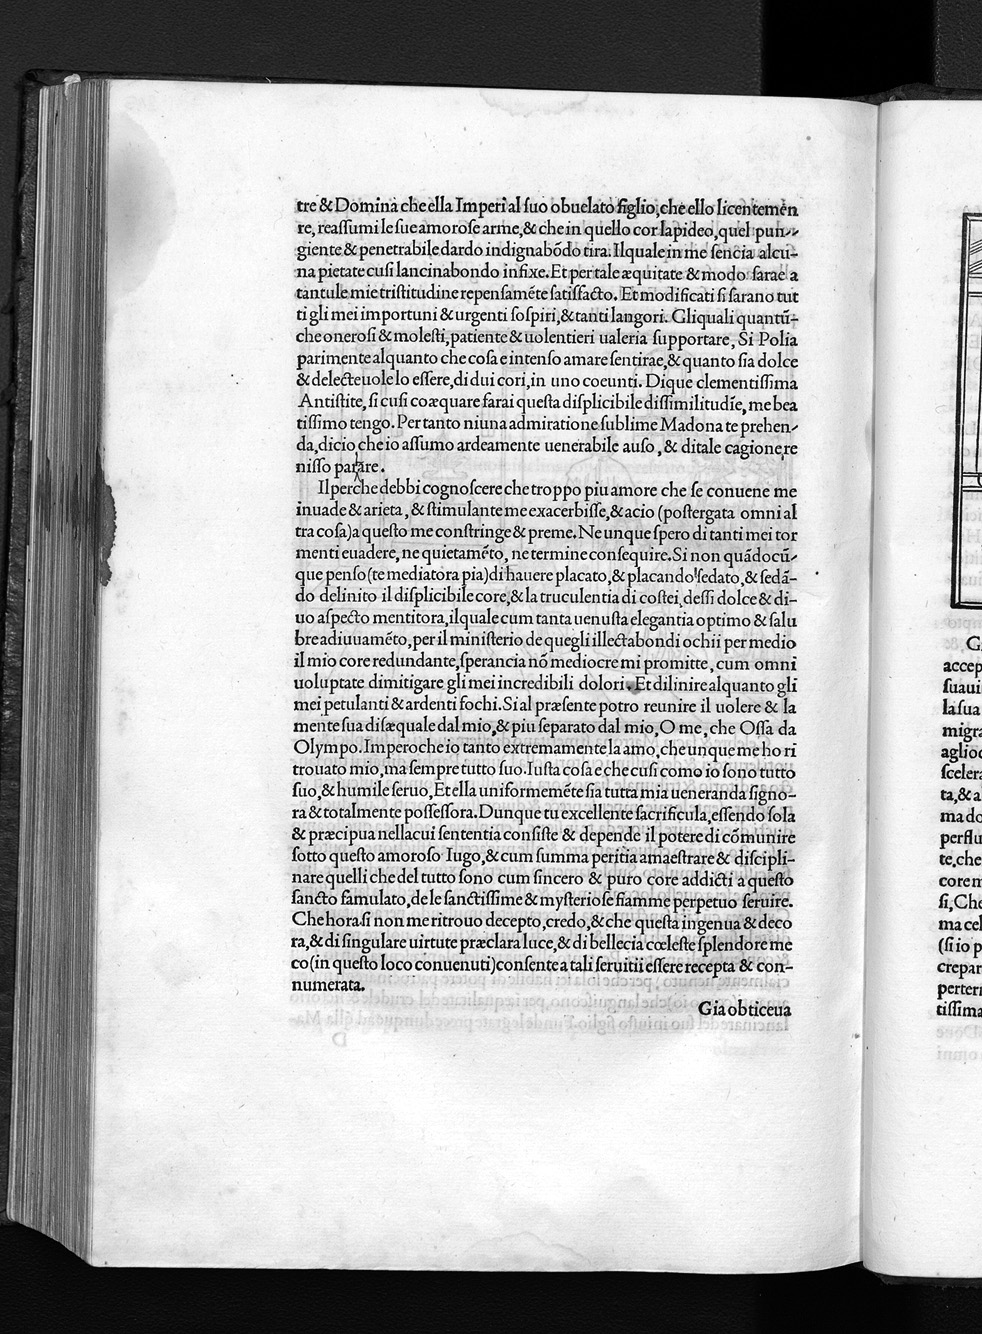 tre & Domina che ella Imperi al ſuo obuelato figlio, che ello licentemẽn
re, reaſſumi le ſue amoroſe arme, & che in quello cor lapideo, quel pun-
giente & penetrabile dardo indignabõdo tira. Il quale in me ſencia alcu-
na pietate cuſi lancinabondo infixe. Et per tale æquitate & modo ſarae a
tantule mie triſtitudine repenſamẽte ſatiſfacto. Et modificati ſi ſarano tut
ti gli mei importuni & urgenti ſoſpiri, & tanti langori. Gli quali quantũ-
che oneroſi & moleſti, patiente & uolentieri ualeria ſupportare, Si Polia
parimente alquanto che coſa e intenſo amare ſentirae, & quanto ſia dolce
& delecteuole lo eſſere, di dui cori, in uno coeunti. Dique clementiſſima
Antiſtite, ſi cuſi coæquare farai queſta diſplicibile diſſimilitudĩe, me bea
tiſſimo tengo. Per tanto niuna admiratione ſublime Madona te prehen-
da, dicio che io aſſumo ardeamente uenerabile auſo, & di tale cagione, re
niſſo parare.
Il perche debbi cognoſcere che troppo piu amore che ſe conuene me
inuade & arieta, & ſtimulante me exacerbiſſe, & acio (poſtergata omni al
tra coſa) a queſto me conſtringe & preme. Ne unque ſpero di tanti mei tor
menti euadere, ne quietamẽto, ne termine conſequire. Si non quãdocũ-
que penſo (te mediatora pia) di hauere placato, & placando ſedato, & ſedã-
do delinito il diſplicibile core, & la truculentia di coſtei, deſſi dolce & di-
uo aſpecto mentitora, il quale cum tanta uenuſta elegantia optimo & ſalu
bre adiuuamẽto, per il miniſterio de quegli illectabondi ochii per medio
il mio core redundante, ſperancia nõ mediocre mi promitte, cum omni
uoluptate di mitigare gli mei incredibili dolori. Et dilinire alquanto gli
mei petulanti & ardenti fochi. Si al præſente potro reunire il uolere & la
mente ſua diſæquale dal mio, & piu ſeparato dal mio, O me, che Oſſa da
Olympo. Imperoche io tanto extremamente la amo, che unque me ho ri
trouato mio, ma ſempre tutto ſuo. Iuſta coſa e, che cuſi como io ſono tutto
ſuo, & humile ſeruo, Et ella uniformemẽte ſia tutta mia ueneranda ſigno-
ra & totalmente poſſeſſora. Dunque tu excellente ſacrificula, eſſendo ſola
& præcipua nella cui ſententia conſiſte & depende il potere di cõmunire
ſotto queſto amoroſo Iugo, & cum ſumma peritia amaeſtrare & diſcipli-
nare quelli che del tutto ſono cum ſincero & puro core addicti a queſto
ſancto famulato, de le ſanctiſſime & myſterioſe fiamme perpetuo ſeruire.
Che hora ſi non me ritrouo decepto, credo, & che queſta ingenua & deco
ra, & di ſingulare uirtute præclara luce, & di bellecia cœleſte ſplendore me
co (in queſto loco conuenuti) conſente a tali ſeruitii eſſere recepta & con-
numerata.
Gia obticeua
accep
ſuaui
la ſua
migra
ſcelera
ta, & a
ma do
perflu
te, che
core m
ſi, Che
ma cel
(ſi io p
crepar
perter
tiſſima